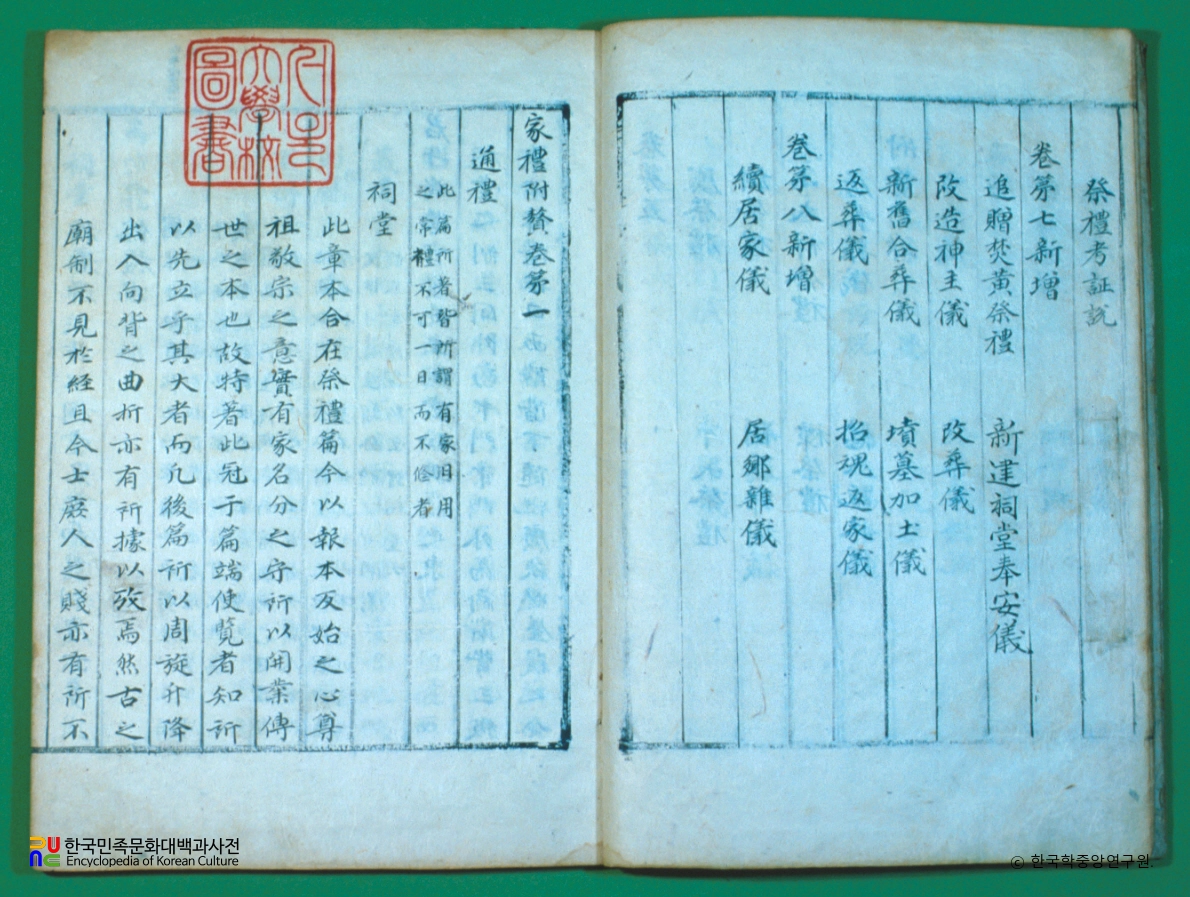 祭禮考証說
卷苐七新增
追贈焚黃祭禮 新建祠堂奉安儀
改造神主儀 改葬儀
新舊合葬儀 墳墓加土儀
返葬儀 招魂返家儀
卷苐八新增
續居家儀 居鄉雜儀
家禮附贅卷苐一
通禮 此篇所著皆所謂有家日用
之常禮不可一日而不修者
祠堂
此章本合在祭禮篇今以報本反始之心尊
祖敬宗之意實有家名分之守所以開業傳
世之本也故特著此冠于篇端使覽者知所
以先立乎其大者而凡後篇所以周旋升降
出入向背之曲折亦有所據以攷焉然古之
廟制不見於経且今士庶人之賤亦有所不
學校
圖書
한국민족문화대백과사전
Encyclopedia of Korean Culture
© 한국학중앙연구원.